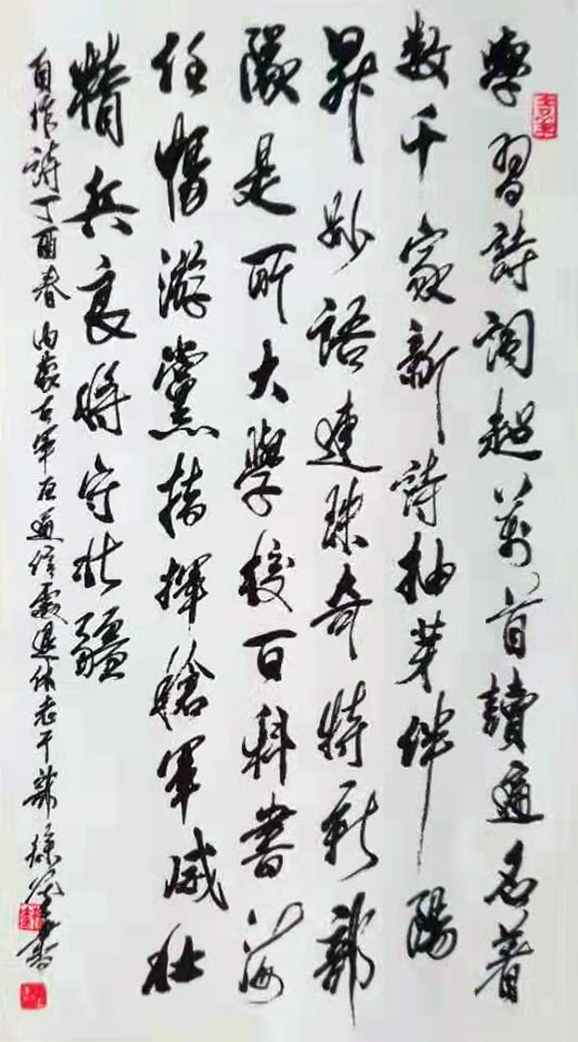 學習詩词超万首讀遍名著
数千家新詩抽芽伴陽
昇妙語連珠奇特新部
隊是所大學校百科書海
任暢游黨指揮槍軍威壮
精兵良将守壮疆
自作詩丁酉春内蒙古軍区通信處退休老干部徐